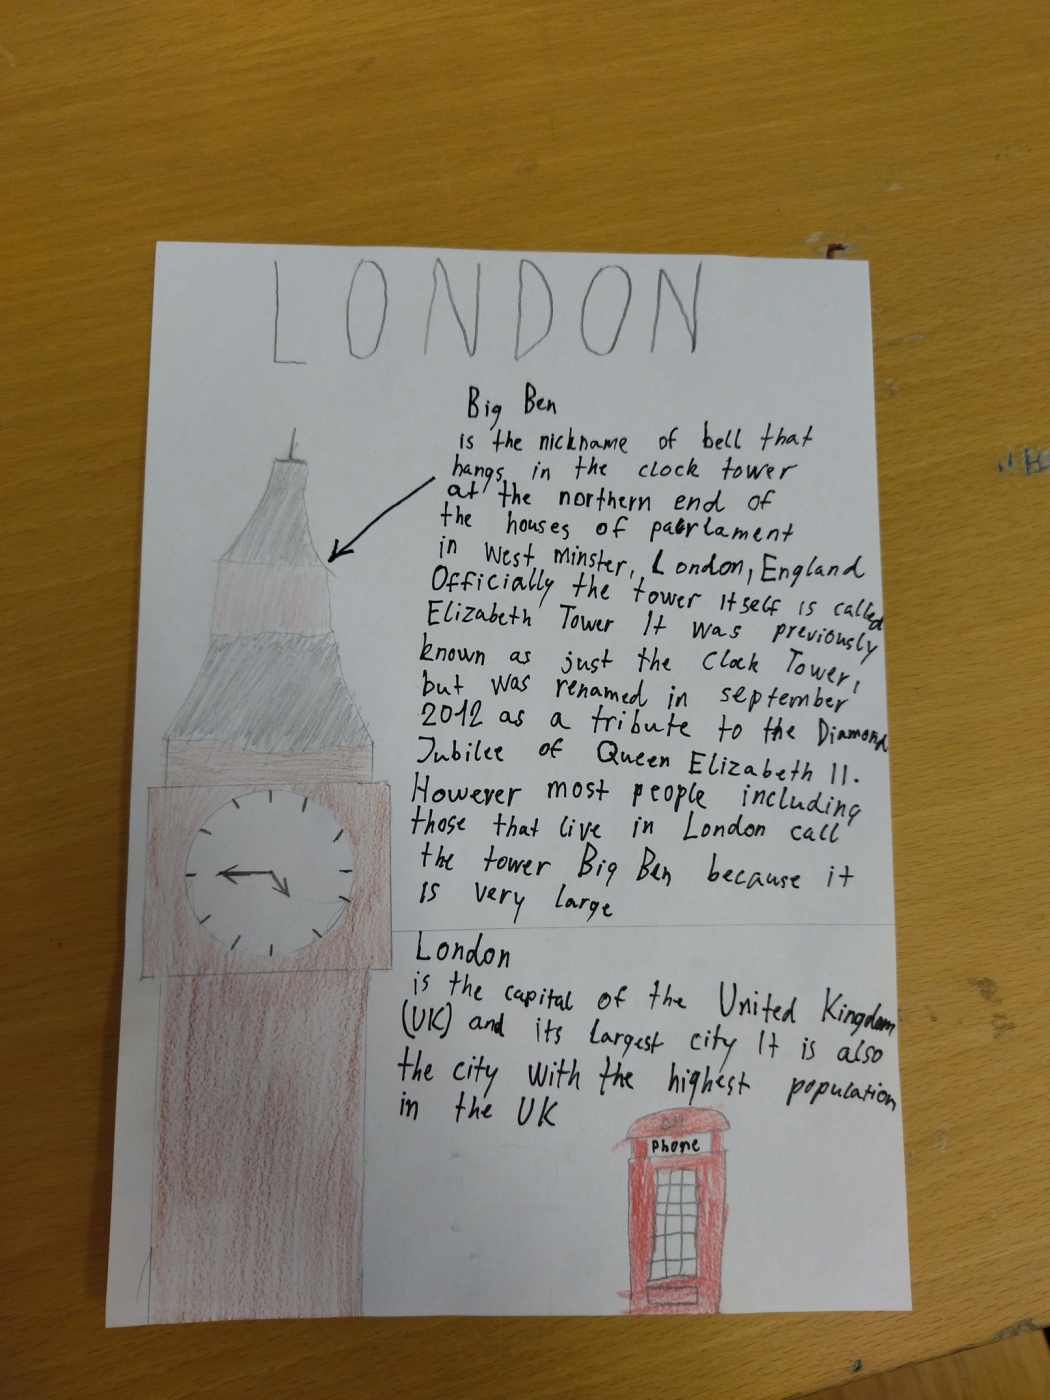 LONDON
Big Ben
is the nickname of bell that
hangs in the clock tower
at the northern end of
the houses of paerlament
in West minster, London, England
Officially the tower itself is called
Elizabeth Tower It was previously
known as just the Clock Tower,
but was renamed in september
2012 as a tribute to the Diamond
Jubilee of Queen Elizabeth II.
However most people including
those that live in London call
the tower Big Ben because it
is very large
London
is the capital of the United Kingdom
(UK) and its largest city It is also
the city with the highest population
in the UK
Phone